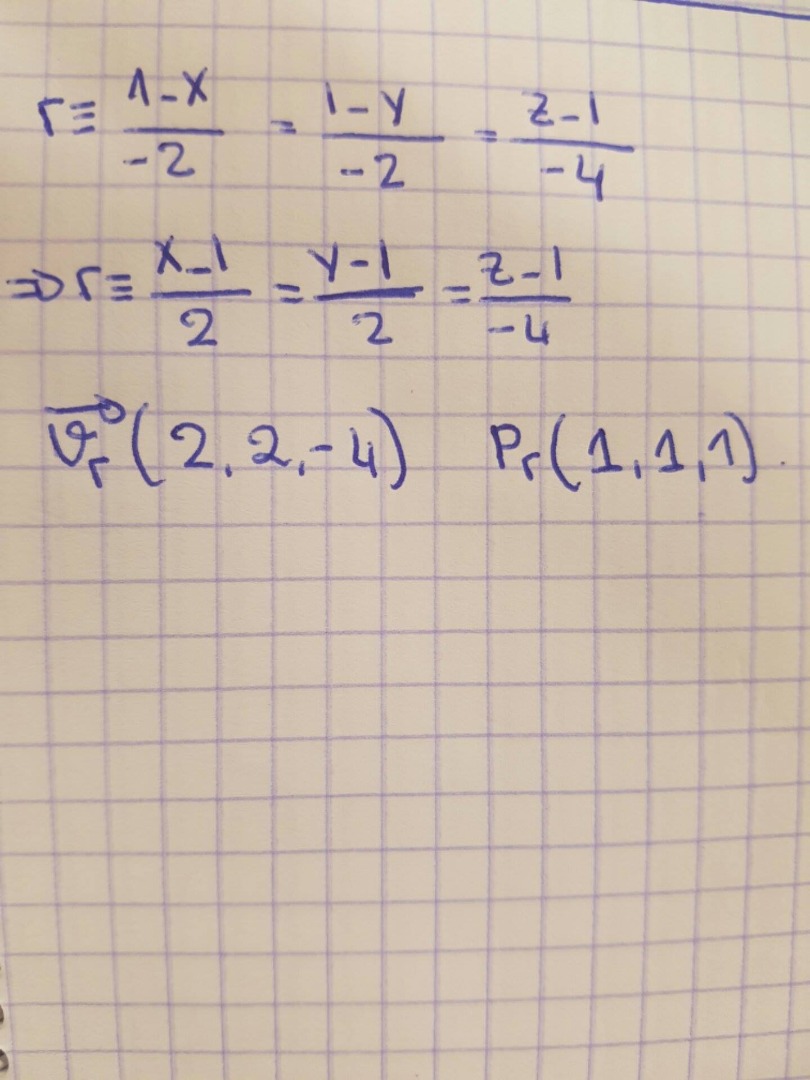 r≡ 1-x/-2 = 1-y/-2 = z-1/-4
⇒ r≡ x-1/2 = y-1/2 = z-1/-4
v⃗r (2,2,-4) Pr(1,1,1).